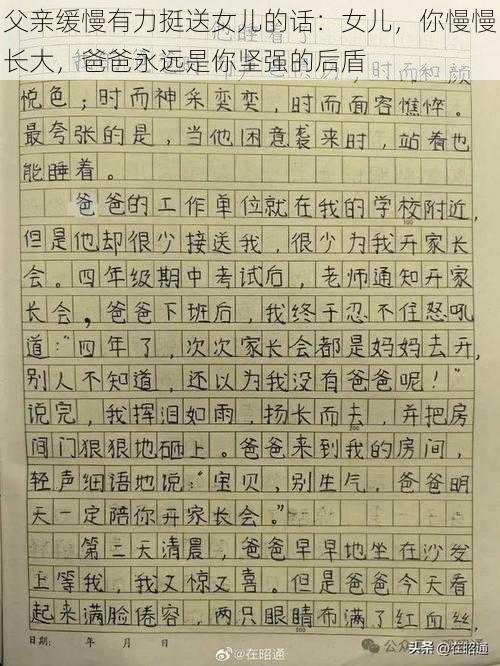 父亲缓慢有力挺送女儿的话：女儿，你慢慢
长大，爸爸永远是你坚强的后盾
和颜
悦色；时而神采奕奕，时而面容憔悴。
最夸张的是，当他困意袭来时，站着也
能睡着。
爸爸的工作单位就在我的学校附近，
但是他却很少接送我，很少为我开家长
会。四年级期中考试后，老师通知开家
长会，爸爸下班后，我终于忍不住怒吼
道："四年了，次次家长会都是妈妈去开，
别人不知道，还以为我没有爸爸呢！"
说完，我挥泪如雨，扬长而去，并把房
间门狠狠地砸上。爸爸来到我的房间，
轻声细语地说："宝贝，别生气，爸爸明
天一定陪你开家长会。"
第二天清晨，爸爸早早地坐在沙发
上等我，我又惊又喜。但是爸爸今天看
起来满脸倦容，两只眼睛布满了红血丝，
日期： 年 月 日
300
@在昭通
公众号
头条 @在昭通